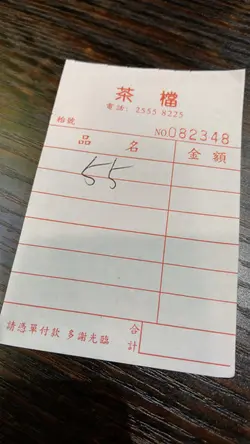 茶檔
電話: 2555 8225
枱號
NO 082348
品名 金額
55
請憑單付款 多謝光臨 合計